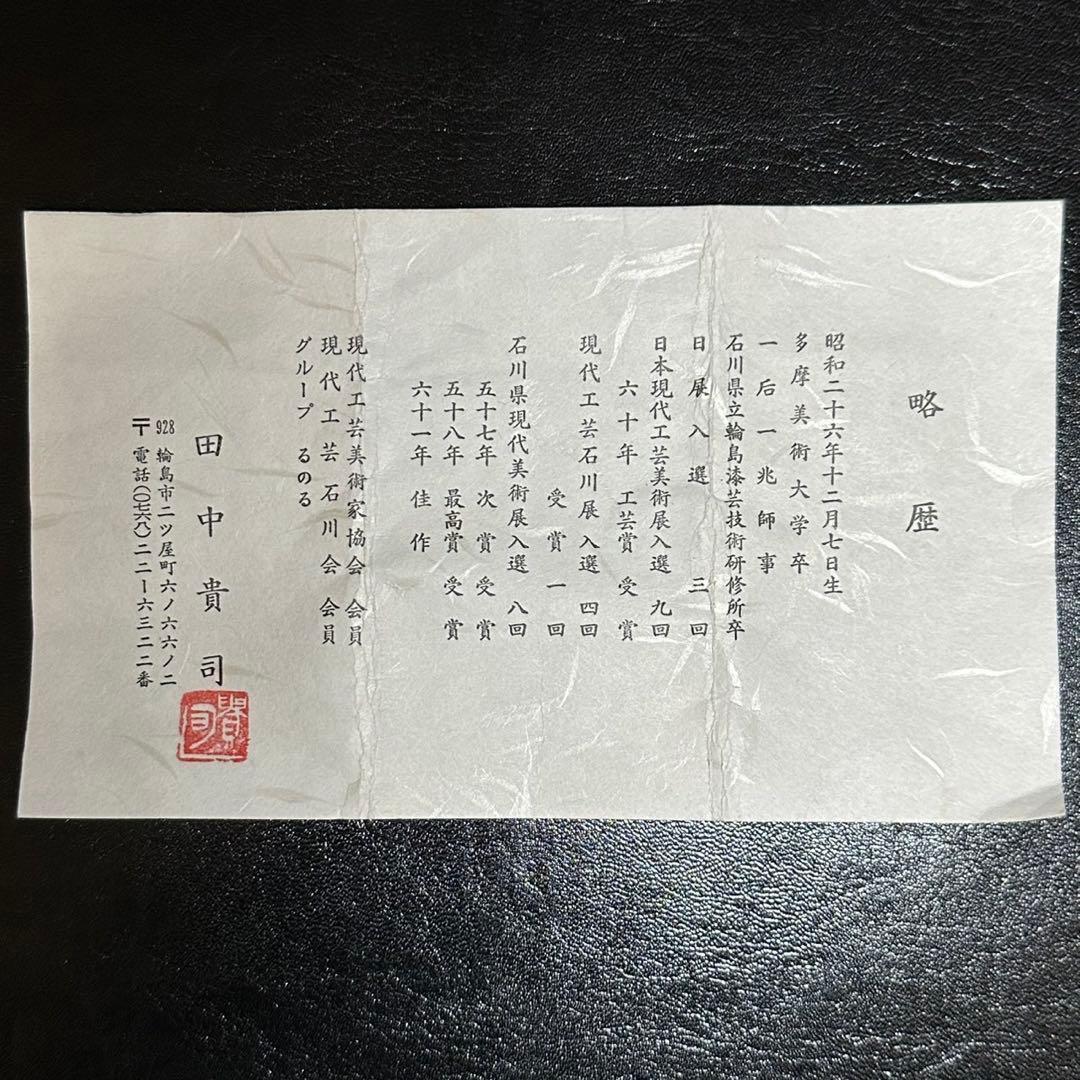 略歴
昭和二十六年十二月七日生
多摩美術大学卒
一后一兆師事
石川県立輪島漆芸技術研修所卒
日展入選 三回
日本現代工芸美術展入選 九回
六十年 工芸賞 受賞
現代工芸石川展 入選 四回
受賞 一回
石川県現代美術展入選 八回
五十七年 次賞 受賞
五十八年 最高賞 受賞
六十一年 佳作
現代工芸美術家協会 会員
現代工芸石川会 会員
グループ るのる
田中貴司
928 輪島市二ツ屋町六ノ六六ノ二
〒 電話(〇七六八)二二ー六三二二番